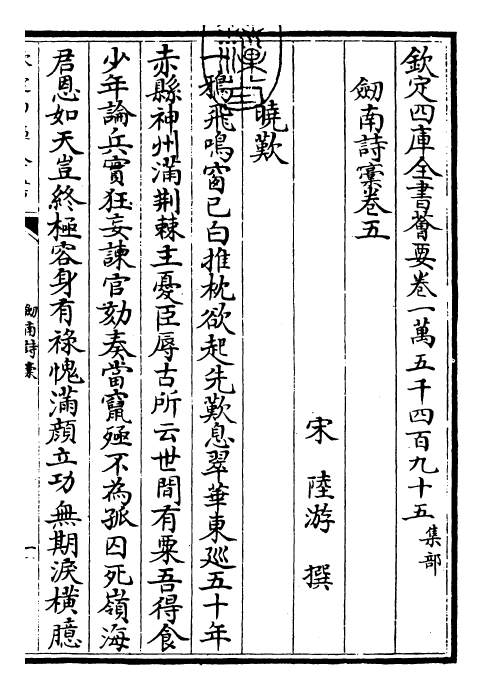 欽定四庫全書薈要卷一萬五千四百九十五集部
劒南詩稾卷五
宋 陸游 撰
曉歎
一鴉飛鳴窗已白推枕欲起先歎息翠華東廵五十年
赤縣神州滿荆棘主憂臣辱古所云世間有粟吾得食
少年論兵實狂妄諫官劾奏當竄殛不為孤囚死嶺海
君恩如天豈終極容身有祿愧滿顔立功無期淚橫臆
劒南詩稾
一